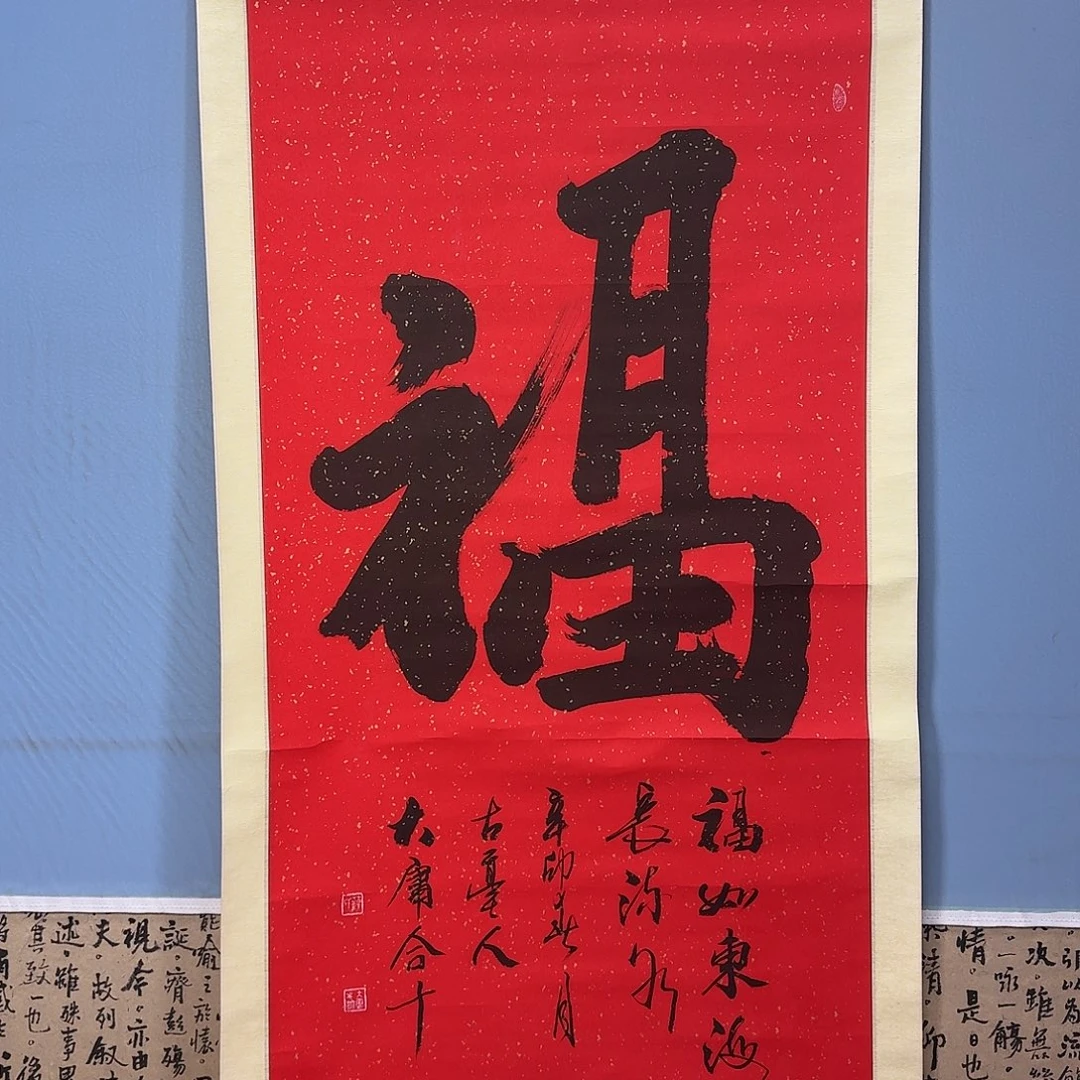 福
福如東海
長流水
辛卯春月
古亳人
大庸合十
引以為流
次。雖無
一詠一觴。
情。是日也
清。仰
能喻之於懷。
誕。齊彭殤
視今。亦由
夫。故列敘
述。雖殊事異
其致一也。後